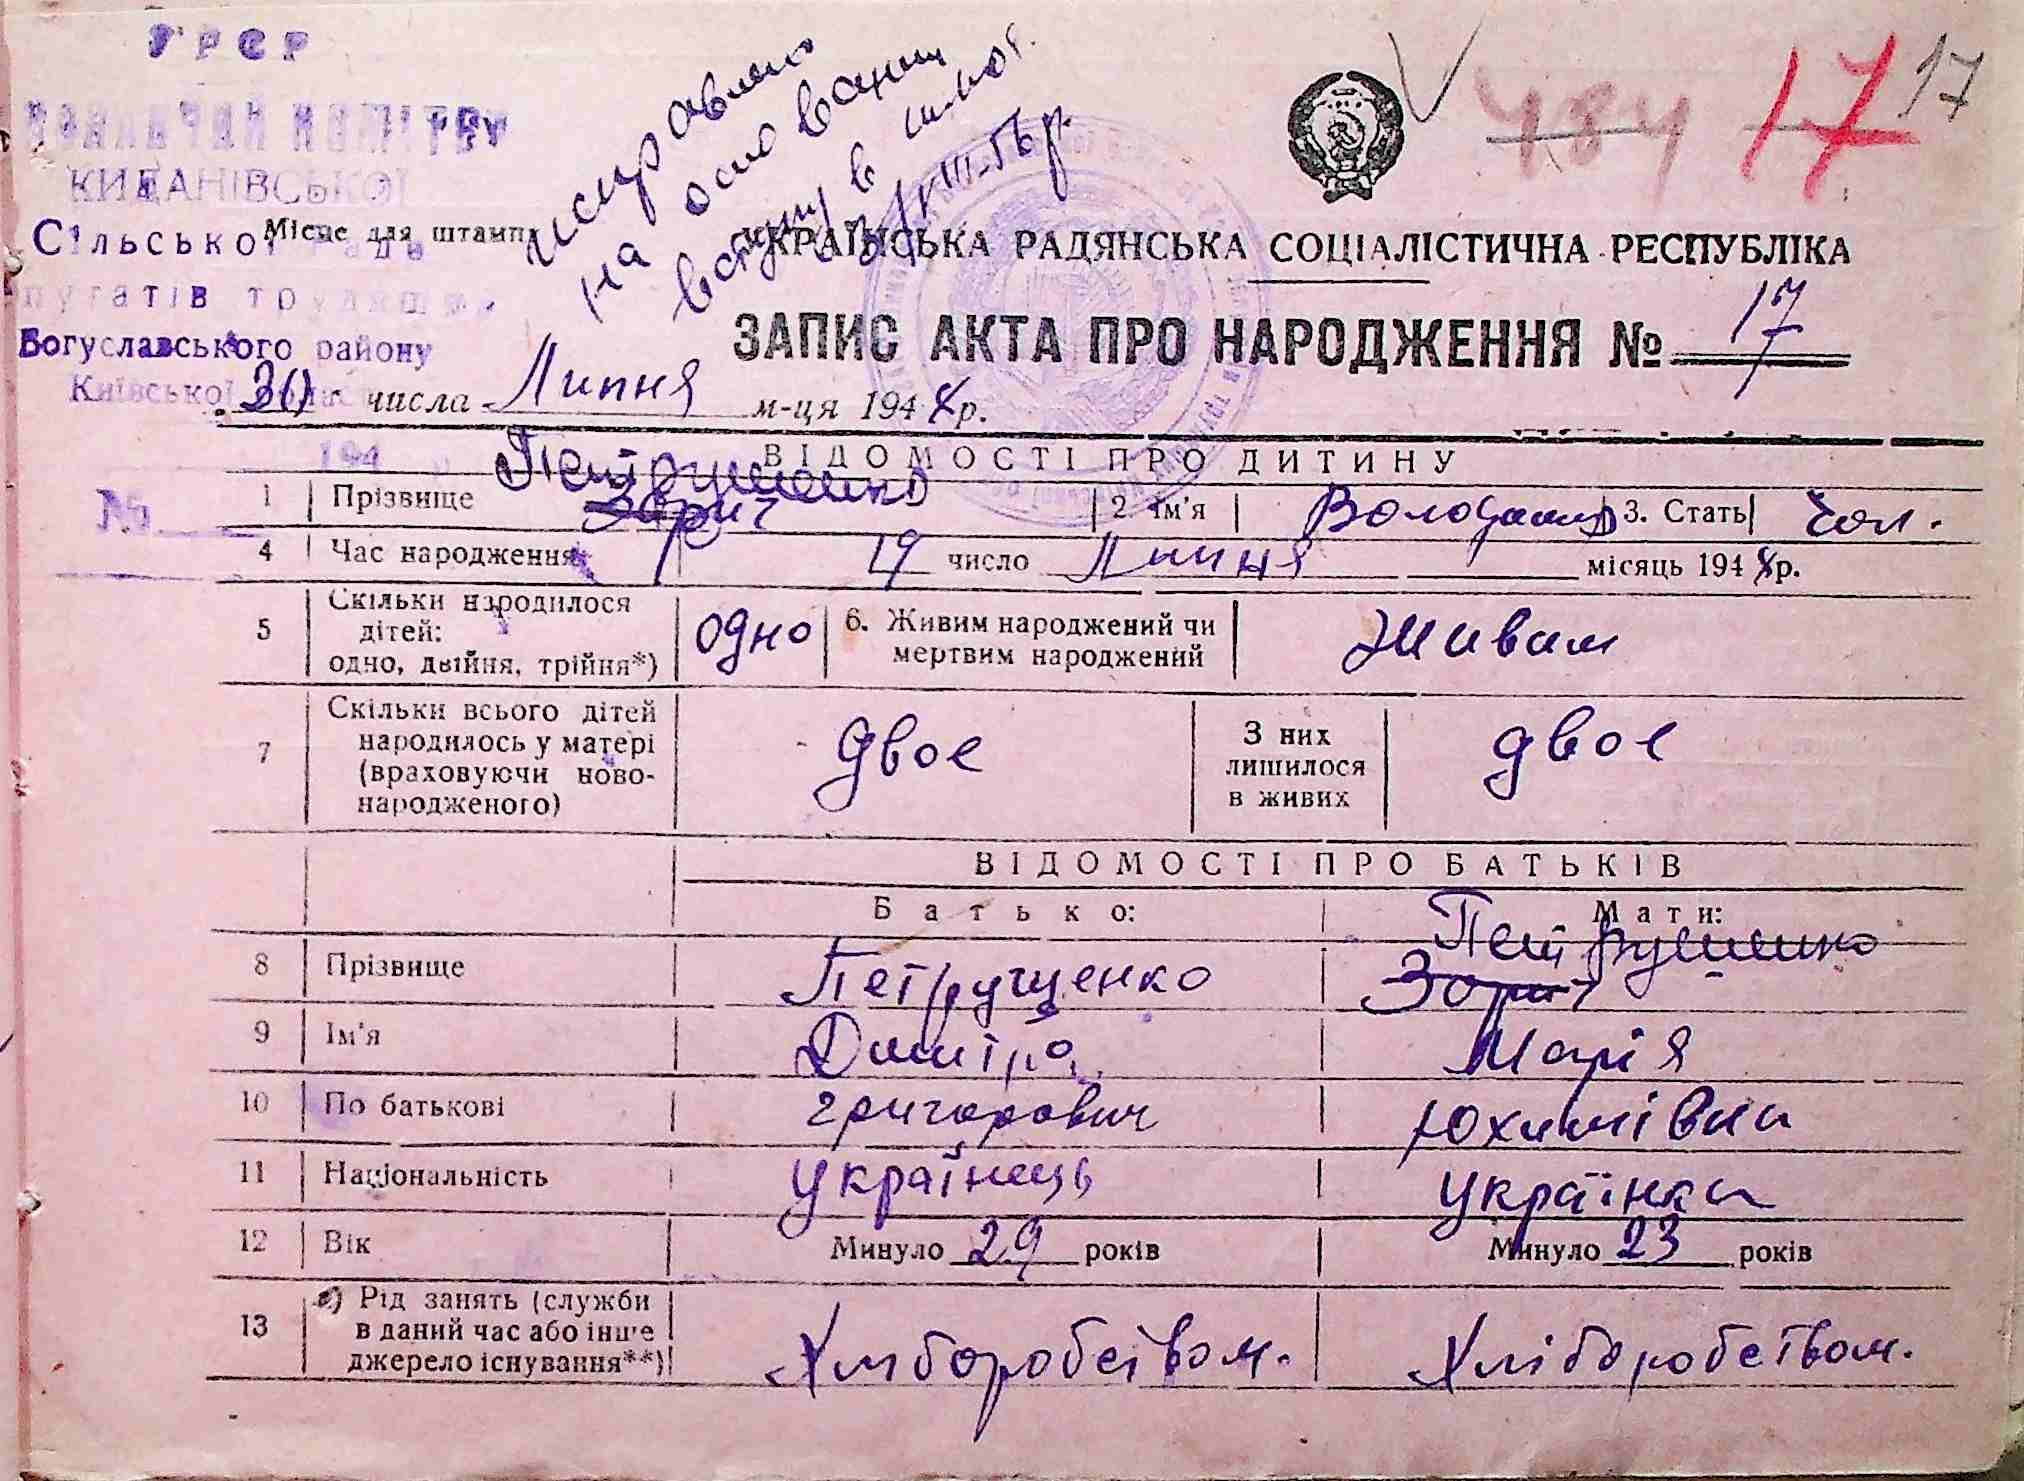 УРСР
484 17 17
КИДАНІВСЬКОЇ
Сільської Ради
Місце для штампу
исправлено
на основании
вступу в
УКРАЇНСЬКА РАДЯНСЬКА СОЦІАЛІСТИЧНА РЕСПУБЛІКА
путатів трудящих
Богуславського району
Київської
ЗАПИС АКТА ПРО НАРОДЖЕННЯ № 17
30 числа Липня м-ця 1948 р.
194
№
ВІДОМОСТІ ПРО ДИТИНУ
Петрушенко
1 Прізвище Зорич 2 Ім'я Володимир 3. Стать Чол.
4 Час народження 19 число Липня місяць 1948 р.
5 Скільки народилося
дітей:
одно, двійня, трійня*)
одно
6. Живим народжений чи
мертвим народжений
живим
7 Скільки всього дітей
народилось у матері
(враховуючи ново-
народженого)
двоє
З них
лишилося
в живих
двоє
ВІДОМОСТІ ПРО БАТЬКІВ
Батько: Мати:
Петрушенко
8 Прізвище Петрущенко Зорич
9 Ім'я Дмитро Марія
10 По батькові григорович Юхимівна
11 Національність українець українка
12 Вік Минуло 29 років Минуло 23 років
13 Рід занять (служби
в даний час або інше
джерело існування**)
Хліборобством. Хліборобством.